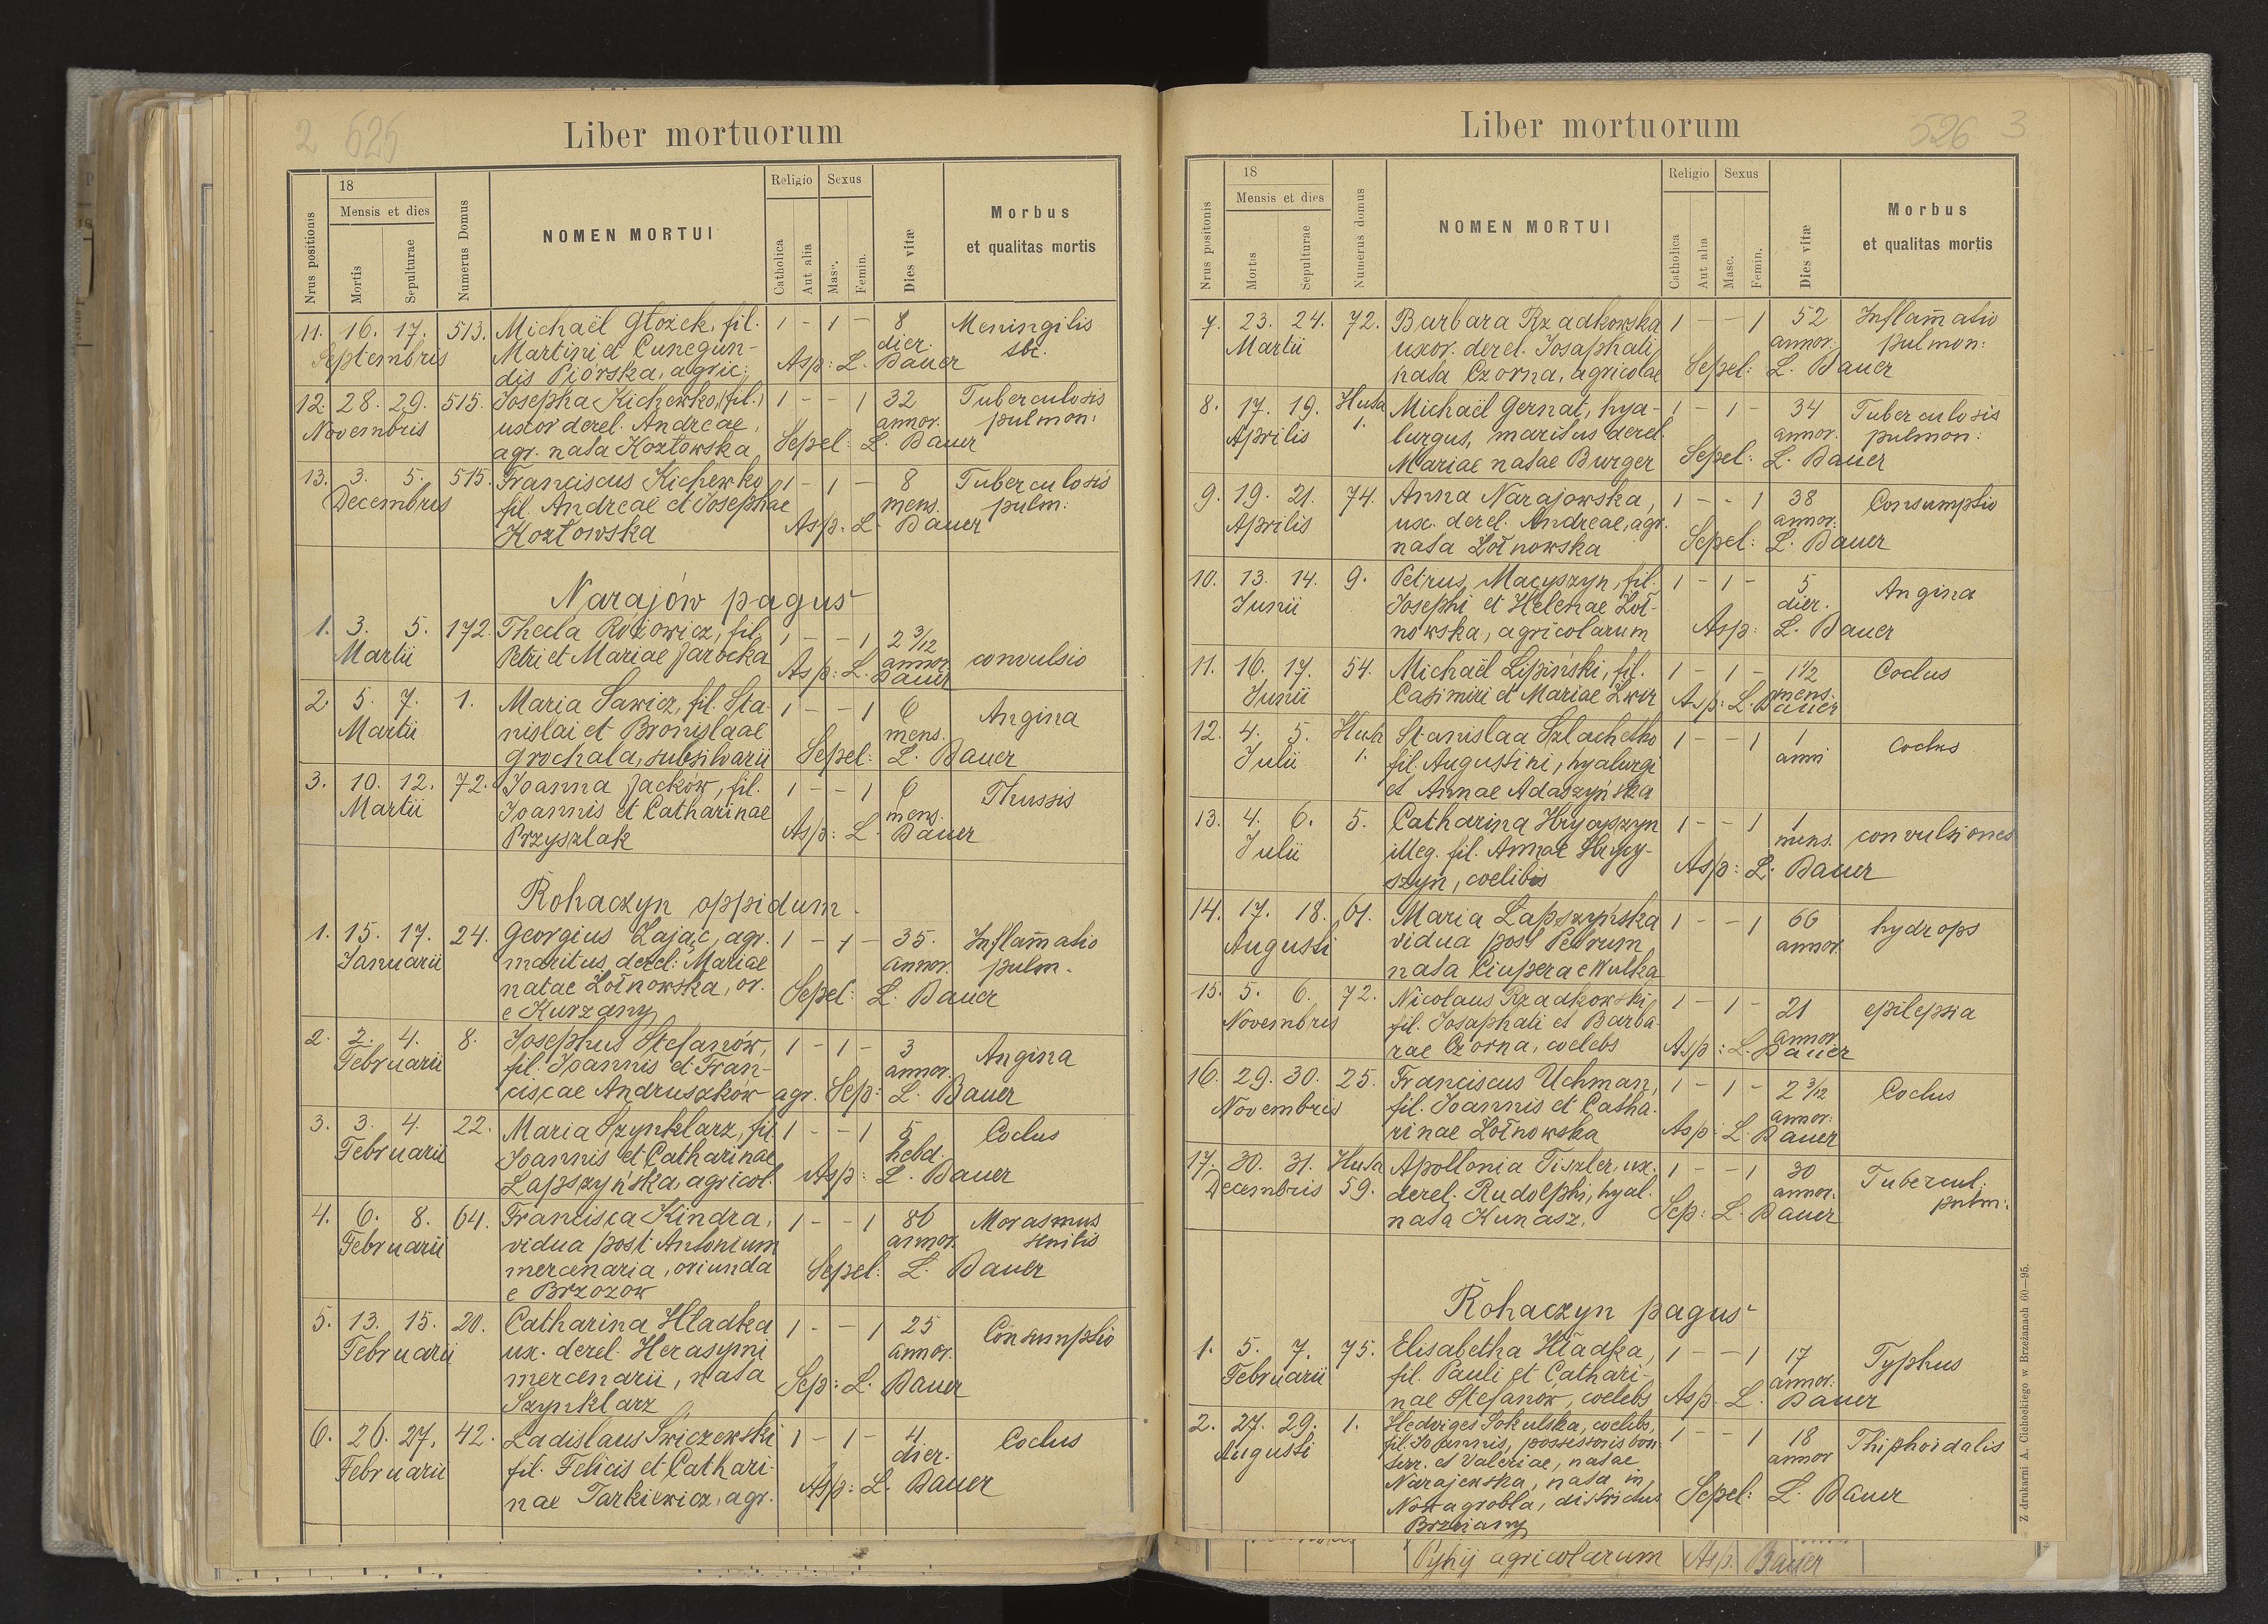 2 625
Liber mortuorum
Nrus positionis
18
Mensis et dies
Mortis
Sepulturae
Numerus Domus
NOMEN MORTUI
Religio
Catholica
Aut alia
Sexus
Masc.
Femin.
Dies vitæ
Morbus
et qualitas mortis
11. 16. 17. 513. Michaël Głożek, fil. 1 - 1 - 8 Meningitis
Septembris Martini et Cunegun- dier. sbc.
dis Piórska, agric. Asp: L. Bauer
12. 28. 29. 515. Josepha Kichewko, (fil.) 1 - - 1 32 Tuberculosis
Novembris uxor derel. Andreae, annor. pulmon:
agr. nata Kozłowska Sepel: L. Bauer
13. 3. 5. 515. Franciscus Kichewko 1 - 1 - 8 Tuberculosis
Decembris fil. Andreae et Josephae mens. pulm:
Kozłowska Asp: L. Bauer
Narajów pagus
1. 3. 5. 172. Thecla Rożowicz, fil. 1 - - 1 2 3/12
Martii Petri et Mariae Jarocka annor. convulsio
Asp: L. Bauer
2. 5. 7. 1. Maria Sawicz, fil. Sta- 1 - - 1 6 Angina
Martii nislai et Bronislaae mens.
Grochala, subsilvarii Sepel: L. Bauer
3. 10. 12. 72. Joanna Jacków, fil. 1 - - 1 6 Thussis
Martii Joannis et Catharinae mens.
Przyszlak Asp: L. Bauer
Rohaczyn oppidum.
1. 15. 17. 24. Georgius Zając, agr. 1 - 1 - 35. Inflam̄atio
Januarii maritus derel: Mariae annor. pulm.
natae Żołnowska, or. Sepel: L. Bauer
e Kurzany
2. 2. 4. 8. Josephus Stefanów, 1 - 1 - 3 Angina
Februarii fil. Joannis et Fran- annor.
ciscae Andruszków agr. Sep: L. Bauer
3. 3. 4. 22. Maria Szynklarz, fil. 1 - - 1 5 Coclus
Februarii Joannis et Catharinae hebd.
Łapszyńska, agricol. Asp: L. Bauer
4. 6. 8. 64. Francisca Kindra, 1 - - 1 86 Morasmus
Februarii vidua post Antonium annor. senilis
mercenaria, oriunda Sepel: L. Bauer
e Brzozow
5. 13. 15. 20. Catharina Hładka 1 - - 1 25 Consumptio
Februarii ux. derel. Herasymi annor.
mercenarii, nata Sep: L. Bauer
Szynklarz
6. 26. 27. 42. Ladislaus Świczewski 1 - 1 - 4 Coclus
Februarii fil. Felicis et Cathari- dier.
nae Tarkiewicz, agr. Asp: L. Bauer
526 3
Liber mortuorum
Nrus positonis
18
Mensis et dies
Mortis
Sepulturae
Numerus domus
NOMEN MORTUI
Religio
Catholica
Aut alia
Sexus
Masc.
Femin.
Dies vitæ
Morbus
et qualitas mortis
7. 23. 24. 72. Barbara Rzadkowska 1 - - 1 52 Inflam̄atio
Martii uxor. derel. Josaphati, annor. pulmon:
nata Czorna, agricolae Sepel: L. Bauer
8. 17. 19. Huta Michaël Gernat, hya- 1 - 1 - 34 Tuberculosis
Aprilis 1. lurgus, maritus derel. annor. pulmon:
Mariae natae Burger Sepel: L. Bauer
9. 19. 21. 74. Anna Narajowska, 1 - - 1 38 Consumptio
Aprilis ux. derel. Andreae, agr. annor.
nata Żołnowska Sepel: L. Bauer
10. 13. 14. 9. Petrus Macyszyn, fil. 1 - 1 - 5 Angina
Junii Josephi et Helenae Żoł- dier.
nowska, agricolarum Asp: L. Bauer
11. 16. 17. 54. Michaël Lipiński, fil. 1 - 1 - 1 1/2 Coclus
Junii Casimiri et Mariae Zwir mens.
Asp: L. Bauer
12. 4. 5. Huta Stanislaa Szlachetko 1 - - 1 1 Coclus
Julii 1. fil. Augustini, hyalurgi anni
et Annae Adaszyńska
13. 4. 6. 5. Catharina Hrycyszyn 1 - - 1 1
Julii illeg. fil. Annae Hrycy- mens. convulsiones
szyn, coelibis Asp: L. Bauer
14. 17. 18. 61. Maria Łapszyńska 1 - - 1 66 hydrops
Augusti vidua post Petrum annor.
nata Ciupera e Wulka
15. 5. 6. 72. Nicolaus Rzadkowski, 1 - 1 - 21 epilepsia
Novembris fil. Josaphati et Barba- annor.
rae Czorna, coelebs Asp: L. Bauer
16. 29. 30. 25. Franciscus Uchman, 1 - 1 - 2 3/12 Coclus
Novembris fil. Joannis et Catha- annor.
rinae Żołnowska Asp: L. Bauer
17. 30. 31. Huta Apollonia Tiszler, ux. 1 - - 1 30 Tubercul.
Decembris 59. derel. Rudolphi, hyal. annor. pulm:
nata Kunasz. Sep: L. Bauer
Rohaczyn pagus
1. 5. 7. 75. Elisabetha Hładka, 1 - - 1 17 Typhus
Februarii fil. Pauli et Cathari- annor.
nae Stefanow, coelebs Asp: L. Bauer
2. 27. 29. 1. Hedviges Sokulska, coelebs, 1 - - 1 18 Thiphoidalis
Augusti fil. Joannis, possessoris bon. annor
terr. et Valeriae, natae
Narajewska, nata in Sepel: L. Bauer
Nowagrobla, districtus
Brzezany
Pyhij agricolarum Asp. Bauer
Z drukarni A. Cichockiego w Brzeżanach 60—95.